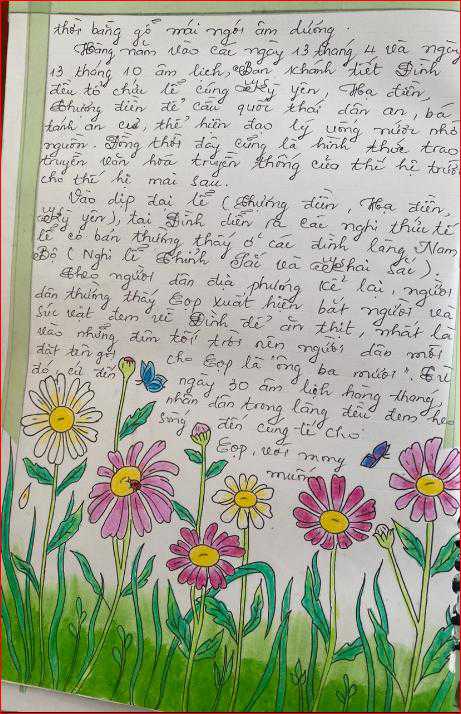 thời bằng gỗ mái ngói âm dương.
Hàng năm vào các ngày 13 tháng 4 và ngày
13 tháng 10 âm lịch, Ban khánh tiết Đình
đều tổ chức lễ cúng Kỳ yên, Hạ điền,
Thượng điền để cầu quốc thái dân an, bá
tánh an cư, thể hiện đạo lý uống nước nhớ
nguồn. Đồng thời đây cũng là hình thức trao
truyền văn hóa truyền thống của thế hệ trước
cho thế hệ mai sau.
Vào dịp đại lễ (Thượng điền, Hạ điền,
Kỳ yên), tại Đình diễn ra các nghi thức tế
lễ cơ bản thường thấy ở các đình làng Nam
Bộ (Nghi lễ Thỉnh Sắc và Khai sắc).
Theo người dân địa phương kể lại, người
dân thường thấy Cọp xuất hiện bắt người và
súc vật đem về Đình để ăn thịt, nhất là
vào những đêm tối trời nên người dân mới
đặt tên gọi cho Cọp là "ông ba mươi". Từ
đó, cứ đến ngày 30 âm lịch hàng tháng,
nhân dân trong làng đều đem heo
sống đến cúng tế cho
Cọp, với mong
muốn